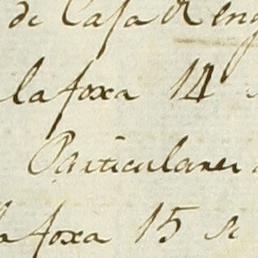 de Casa Reng
la foxa 14
Particulares
la foxa 15 se